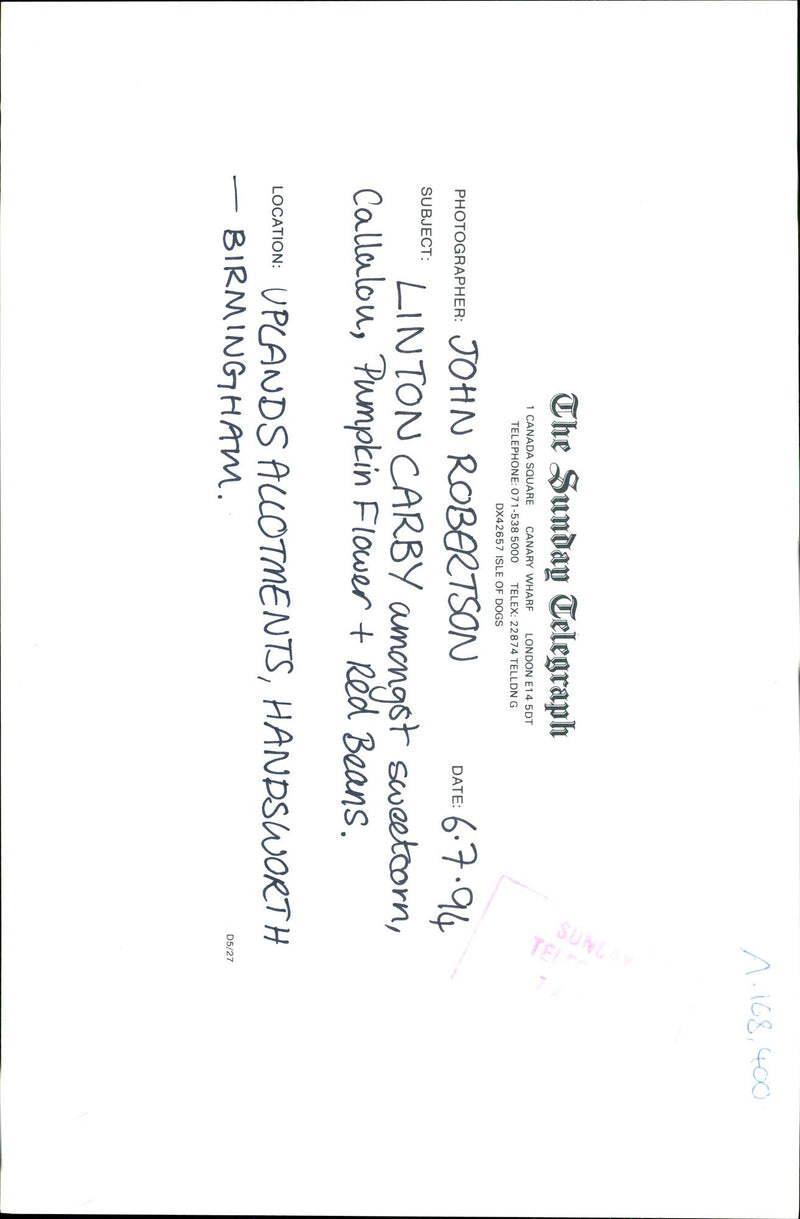 The Sunday Telegraph
1 CANADA SQUARE CANARY WHARF LONDON E14 5DT
TELEPHONE: 071-538 5000 TELEX: 22874 TELLDN G
DX42657 ISLE OF DOGS
PHOTOGRAPHER: JOHN ROBERTSON DATE: 6.7.94
SUBJECT: LINTON CARBY amongst sweetcorn,
Callalou, Pumpkin Flower + Red Beans.
LOCATION: UPLANDS ALLOTMENTS, HANDSWORTH
— BIRMINGHAM.
D5/27
SUNDAY
168,400